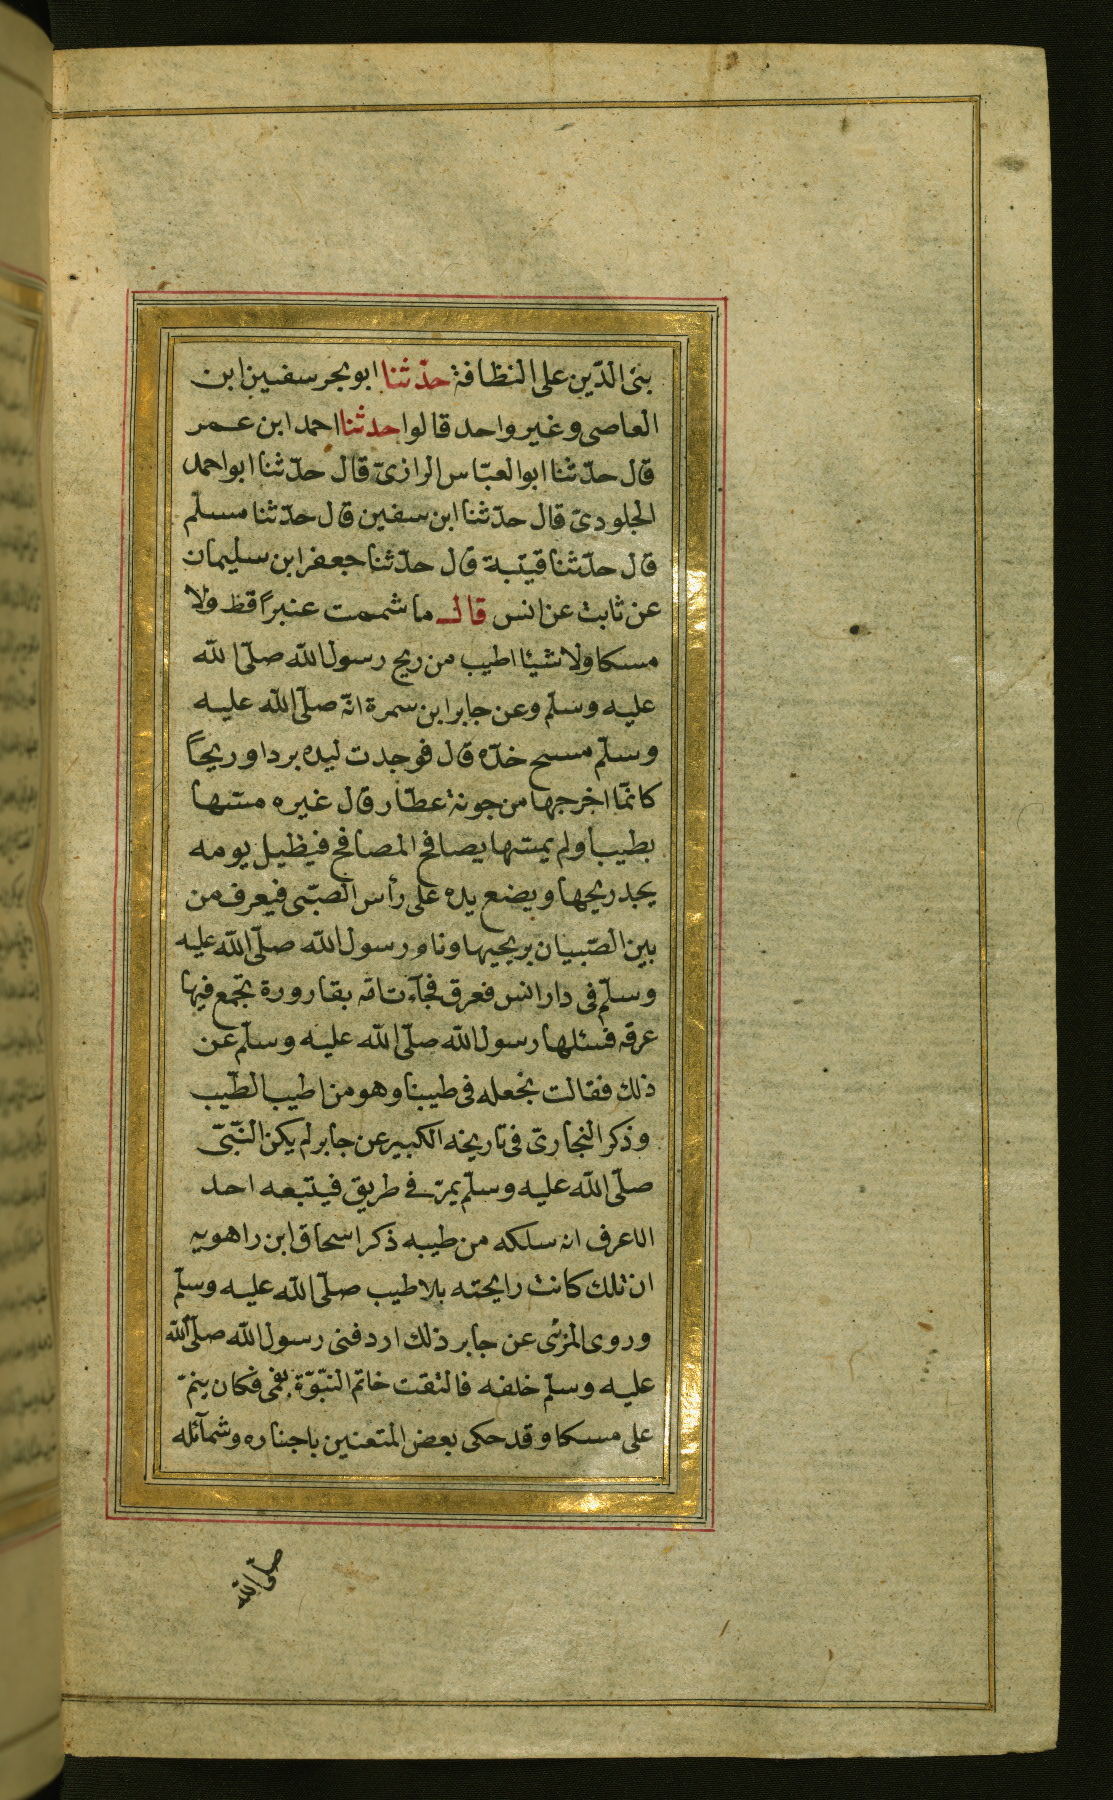 بنى الدّين على النظافة حدّثنا ابو بحر سفين ابن
العاصى وغير واحد قالوا حدثنا احمد ابن عمر
قال حدّثنا ابو العبّاس الرازىّ قال حدّثنا ابو احمد
الجلودىّ قال حدّثنا ابن سفين قال حدّثنا مسلّم
قال حدّثنا قيتبة قال حدّثنا جعفر ابن سليمان
عن ثابت عن انس قال ما شممت عنبرًا قط ولا
مسكا ولا شيئا اطيب من ريح رسول الله صلّى الله
عليه وسلّم وعن جابر ابن سمرة انّه صلّى الله عليه
وسلّم مسح خدّه قال فوجدت ليده بردا وريحًا
كانّما اخرجها من جونة عطّار قال غيره مسّها
بطيب او لم يمسّها يصافح المصافح فيظيل يومه
يجد ريحها ويضع يده على رأس الصبّى فيعرف من
بين الصّبيان بريحيها ونام رسول الله صلّى الله عليه
وسلّم فى دار انس فعرق فجآءت امّه بقارورة تجمع فيها
عرقه فسئلها رسول الله صلّى الله عليه وسلّم عن
ذلك فقالت نجعله فى طيبنا وهو من اطيب الطّيب
وذكر النجارىّ فى تاريخه الكبير عن جابر لم يكن النّبىّ
صلّى الله عليه وسلّم يمرّ فى طريق فيتبعه احد
الا عرف انه سلكه من طيبه ذكر اسحاق ابن راهويه
ان تلك كانت رايحته بلا طيب صلّى الله عليه وسلّم
وروى المزنى عن جابر ذلك اردفنى رسول الله صلّى الله
عليه وسلّم خلفه فالتقت خاتم النبّوّة بفمى فكان ينمّ
على مسكا وقد حكى بعض المتعنين باجناره وشمآئله
صلّى الله